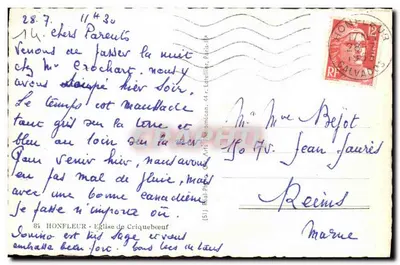 28.7. 11h30
Chers Parents
Venons de passer la nuit
chez Mr Crochart. nous y
avons soupé hier soir.
Le temps est maussade
tout gris sur la terre et
bleu au loin sur la mer
Pour venir hier, nous avons
eu pas mal de pluie, mais
avec une bonne canadienne
je passe n'importe où.
85 HONFLEUR - Eglise de Criquebœuf
est très sage et vous
embrasse bien fort.
HONFLEUR
CALVADOS
Mr Mme Béjot
150 Av. Jean Jaurès
Reims
Marne